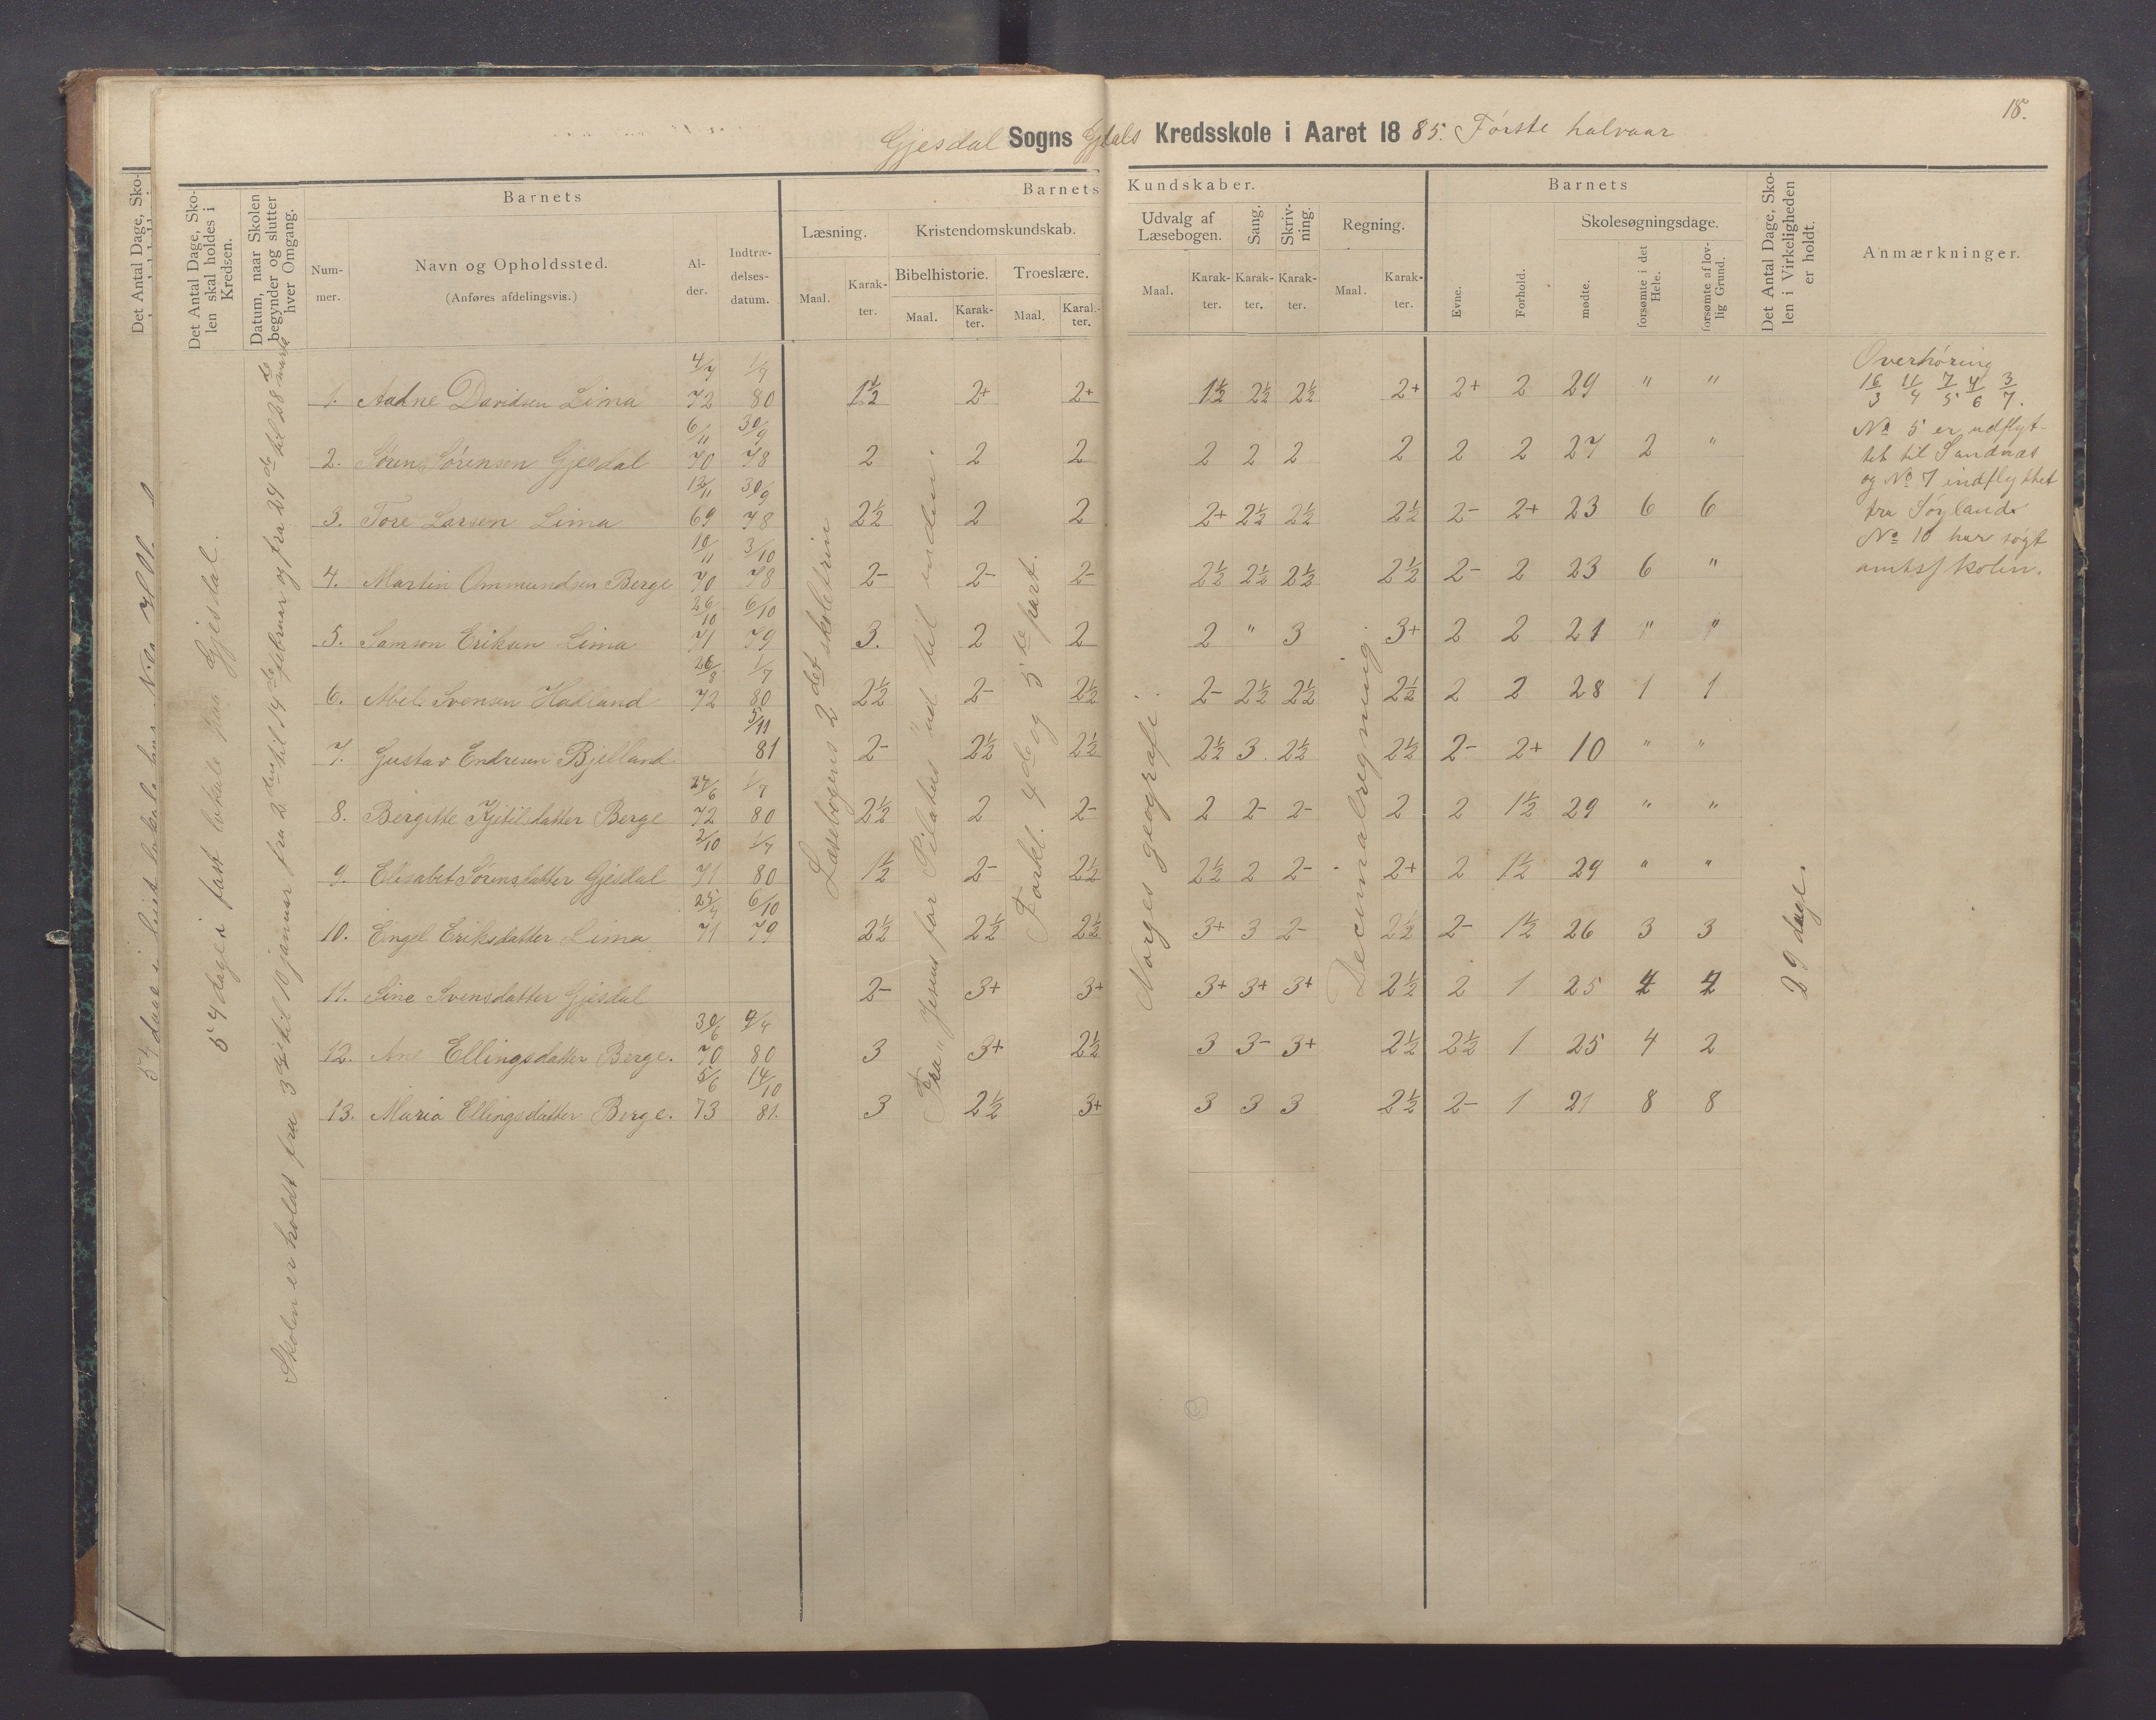 18.
Gjesdal Sogns Gjdals Kredsskole i Aaret 1885. Første halvaar
Det Antal Dage, Skolen skal holdes i Kredsen.
Datum, naar Skolen begynder og slutter hver Omgang.
Barnets
Barnets Kundskaber.
Barnets
Det Antal Dage, Skolen i Virkeligheden er holdt.
Anmærkninger.
Nummer.
Navn og Opholdssted.
(Anføres afdelingsvis.)
Alder.
Indtrædelsesdatum.
Læsning.
Kristendomskundskab.
Bibelhistorie.
Troeslære.
Udvalg af Læsebogen.
Sang.
Skrivning.
Regning.
Evne.
Forhold.
Skolesøgningsdage.
mødte.
forsømte i det Hele.
forsømte af lovlig Grund.
Maal. Karakter. Maal. Karakter. Maal. Karakter. Maal. Karakter. Karakter. Karakter. Maal. Karakter.
54 dage i fast lokale paa Gjesdal.
Skolen er holdt fra 3die til 10 januar fra 2den til 14de februar og fra 24de til 28de marts
Læsebogens 2det skoletrin
Fra „Jesus for Pilatus" ud til enden.
Forkl. 4de og 5te part.
Norges geografi.
Decimalregning
29 dage.
1. Aadne Davidsen Lima 4/7 72 1/7 80 1½ 2+ 2+ 1½ 2½ 2½ 2+ 2+ 2 29 " "
2. Søren Sørensen Gjesdal 6/11 70 30/9 78 2 2 2 2 2 2 2 2 2 27 2 "
3. Tore Larsen Lima 12/11 69 30/9 78 2½ 2 2 2+ 2½ 2½ 2½ 2- 2+ 23 6 6
4. Martin Ommundsen Berge 10/11 70 3/10 78 2- 2- 2- 2½ 2½ 2½ 2½ 2- 2 23 6 "
5. Samson Eriksen Lima 26/10 71 6/10 79 3. 2 2 2 " 3 3+ 2 2 21 " "
6. Abel Svensen Hadland 26/8 72 1/7 80 2½ 2- 2½ 2- 2½ 2½ 2½ 2 2 28 1 1
7. Gustav Endresen Bjelland 5/11 81 2- 2½ 2½ 2½ 3. 2½ 2½ 2- 2+ 10 " "
8. Bergitte Kjetilsdatter Berge 27/6 72 1/7 80 2½ 2 2- 2 2- 2- 2 2 1½ 29 " "
9. Elisabet Sørensdatter Gjesdal 2/10 71 1/7 80 1½ 2- 2½ 2½ 2 2- 2+ 2 1½ 29 " "
10. Engel Eriksdatter Lima 71 6/10 79 2½ 2½ 2½ 3+ 3 2- 2½ 2- 1½ 26 3 3
11. Sine Svensdatter Gjesdal 2- 3+ 3+ 3+ 3+ 3+ 2½ 2 1 25 4 4
12. Ane Ellingsdatter Berge. 30/6 70 80 3 3+ 2½ 3 3- 3+ 2½ 2½ 1 25 4 2
13. Maria Ellingsdatter Berge. 5/6 73 14/10 81. 3 2½ 3+ 3 3 3 2½ 2- 1 21 8 8
Overhøring
16/3 11/4 7/5 4/6 3/7.
No 5 er udflyt-
tet til Sandnæs
og No 7 indflyttet
fra Søyland
No 10 har søgt
amtsskolen.